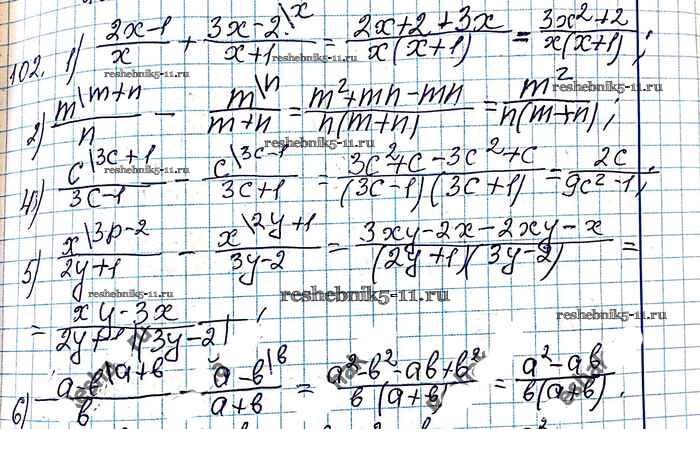 102. 1) \frac{2x-1}{x} + \frac{3x-2 \backslash x}{x+1} = \frac{2x+2+3x}{x(x+1)} = \frac{3x²+2}{x(x+1)};
reshebnik5-11.ru reshebnik5-11.ru
2) \frac{m \backslash m+n}{n} - \frac{m \backslash n}{m+n} = \frac{m²+mn-mn}{n(m+n)} = \frac{m²}{n(m+n)};
reshebnik5-11.ru reshebnik5-11.ru
4) \frac{c \backslash 3c+1}{3c-1} - \frac{c \backslash 3c-1}{3c+1} = \frac{3c²+c-3c²+c}{(3c-1)(3c+1)} = \frac{2c}{9c²-1};
5) \frac{x \backslash 3p-2}{2y+1} - \frac{x \backslash 2y+1}{3y-2} = \frac{3xy-2x-2xy-x}{(2y+1)(3y-2)} =
reshebnik5-11.ru reshebnik5-11.ru reshebnik5-11.ru
= \frac{xy-3x}{2y+1)(3y-2)};
6) \frac{a-в \backslash a+в}{в} - \frac{a-в \backslash в}{a+в} = \frac{a²-в²-aв+в²}{в(a+в)} = \frac{a²-aв}{в(a+в)}.